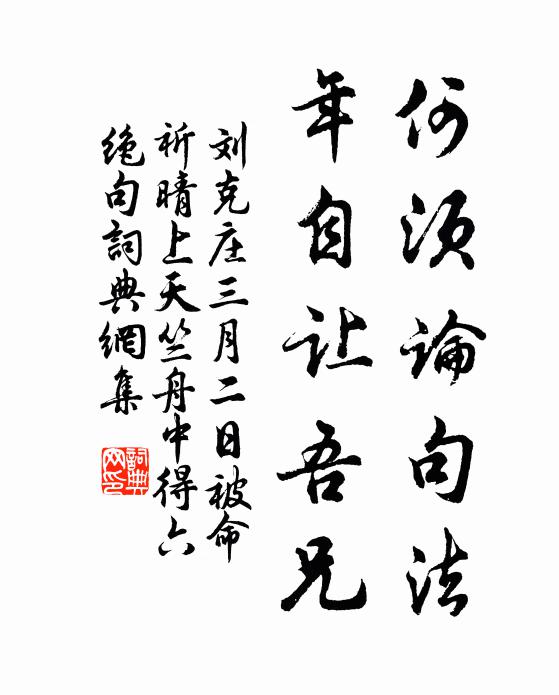 何须論句法
年自让吾兄
刘克庄三月二日被命
祈晴上天竺舟中得六
絶句詞典網集
詞典网印